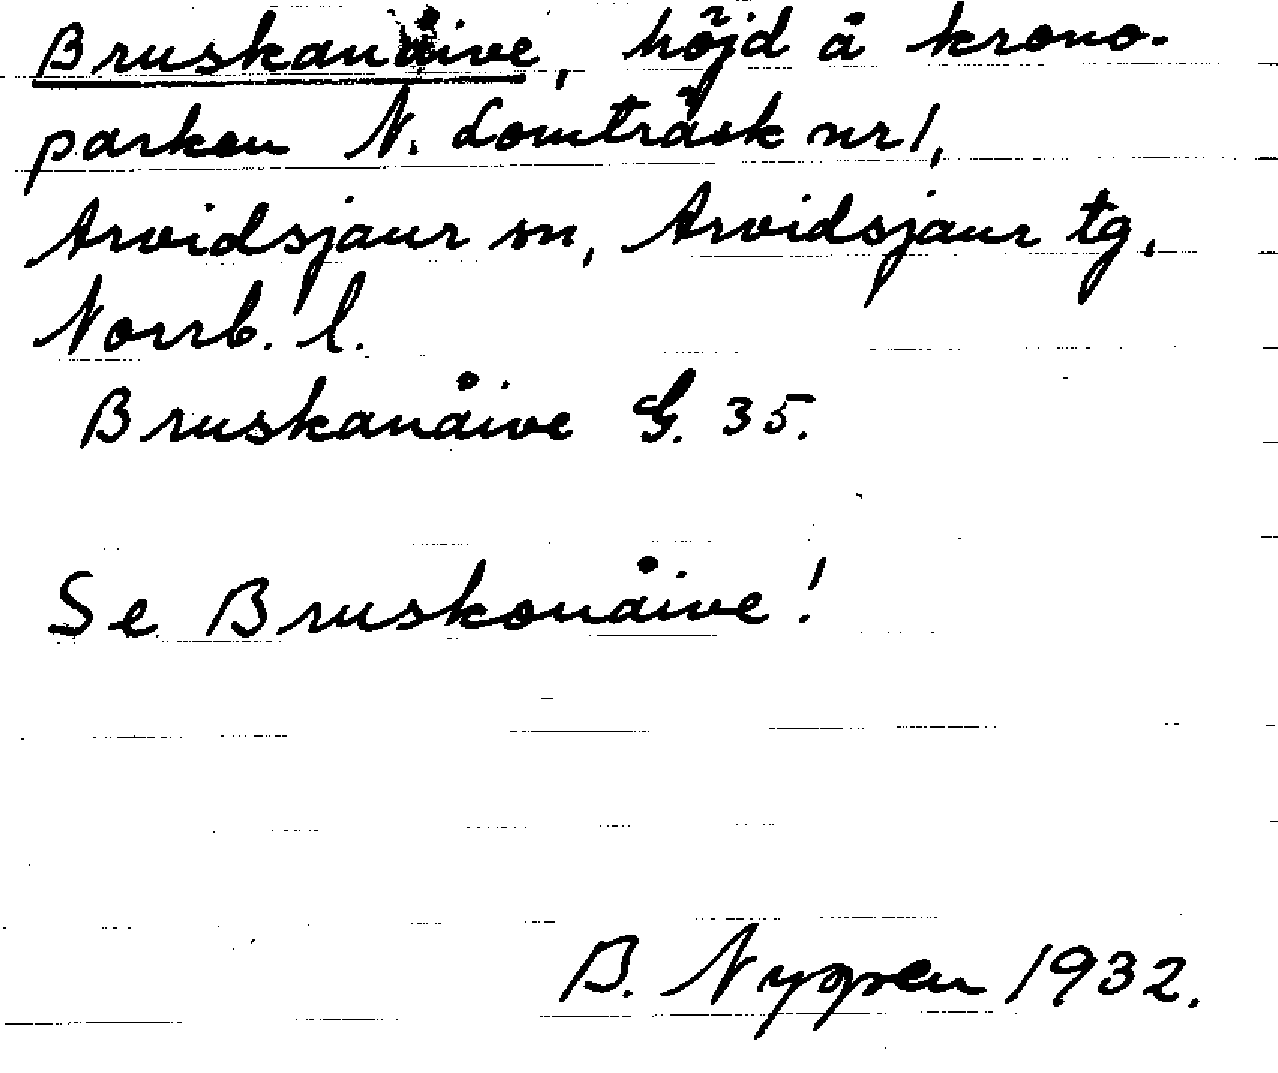 Bruskanåive, höjd å krono-
parken N. Lomträsk nr 1,
Arvidsjaur sn, Arvidsjaur tg.
Norrb. l.
Bruskanåive G. 35.
Se Bruskonåive!
B. Nygren 1932.